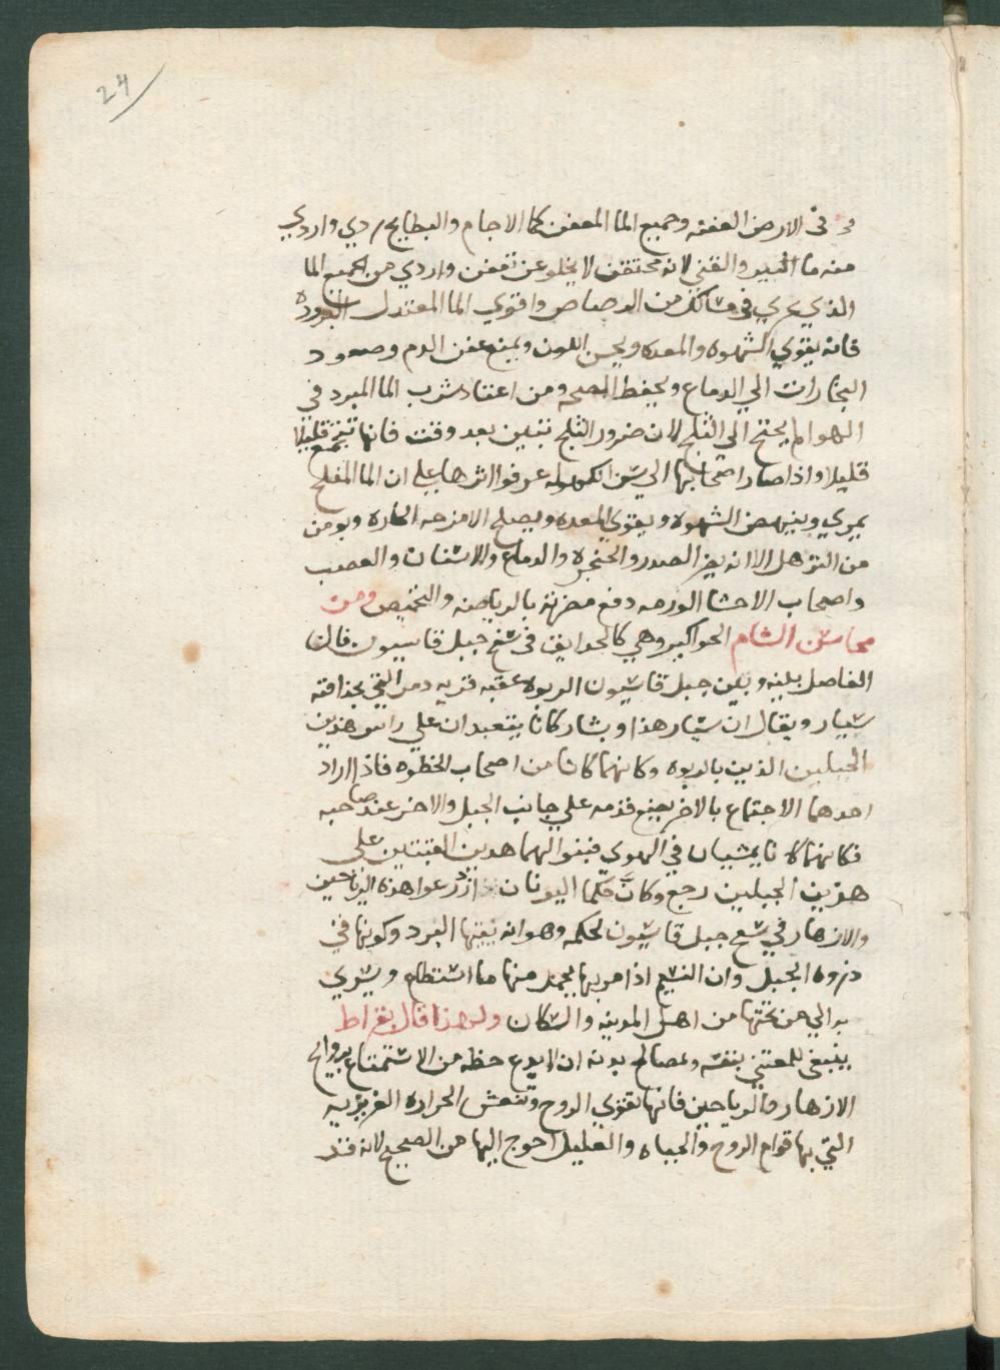 24
في الارض العفنه وجميع الما المعفن كما الاجام والبطايح ردي واردي
منه ما البير والقني لانه محتقن لا يخلو عن تعفن واردي من الجميع الما
الذي يجري في مسالك من الرصاص واقوي الما المعتدل البروده
فانه يقوي الشهوه والمعده ويحسن اللون ويمنع عفن الدم وصعود
البخارات الي الدماغ ويحفظ الصحه ومن اعتاد شرب الما المبرد في
الهوا لم يحتج الي الثلج لان ضرور الثلج تتبين بعد وقت فانها تجتمع قليلا
قليلا واذا صار اصحابها الي سن الكهوله عرفوا اثرها علي ان الما المثلج
يمري وينهض الشهوه ويقوي المعده ويصلح الامزجه الحاره ويومن
من الترهل الا انه يضر الصدر والحنجره والدماغ والاسنان والعصب
واصحاب الاحشا الورمه دفع مضرته بالرياضه والتخميص ومن
محاسن الشام الحواكير وهي كالحدايق في سفح جبل قاسيون قال
الفاصل بينه وبين جبل قاسيون الربوه عقبه قريه دمر التي بحذافته
سيار ويقال ان سيار هذا وبشار كانا يتعبدان علي راس هذين
الجبلين الذين بالربوه وكانهما كانا من اصحاب الخطوه فاذا اراد
احدهما الاجتماع بالاخر يضع قدمه علي جانب الجبل والاخر عند صاحبه
فكانهما كانا يمشيان في الهوي فبنوا لهما هذين القبتين علي
هذين الجبلين رجع وكان حكما اليونان ازدرعوا هذه الرياحين
والازهار في سفح جبل قاسيون لحكمه وهو انه يقيها البرد وكونها في
دروه الجبل وان النسيم اذا مر بها يحمل منها ما استطام ويسري
به الي من تحتها من اهل المدينه والسكان ولهذا قال بقراط
ينبغي للمعتني بنفسه ومصالح بدنه ان لا يدع حظه من الاستمتاع بروايح
الازهار والرياحين فانها تقوي الروح وتنعش الحراره الغريزيه
التي بها قوام الروح والحياه والعليل احوج اليها من الصحيح لانه قد